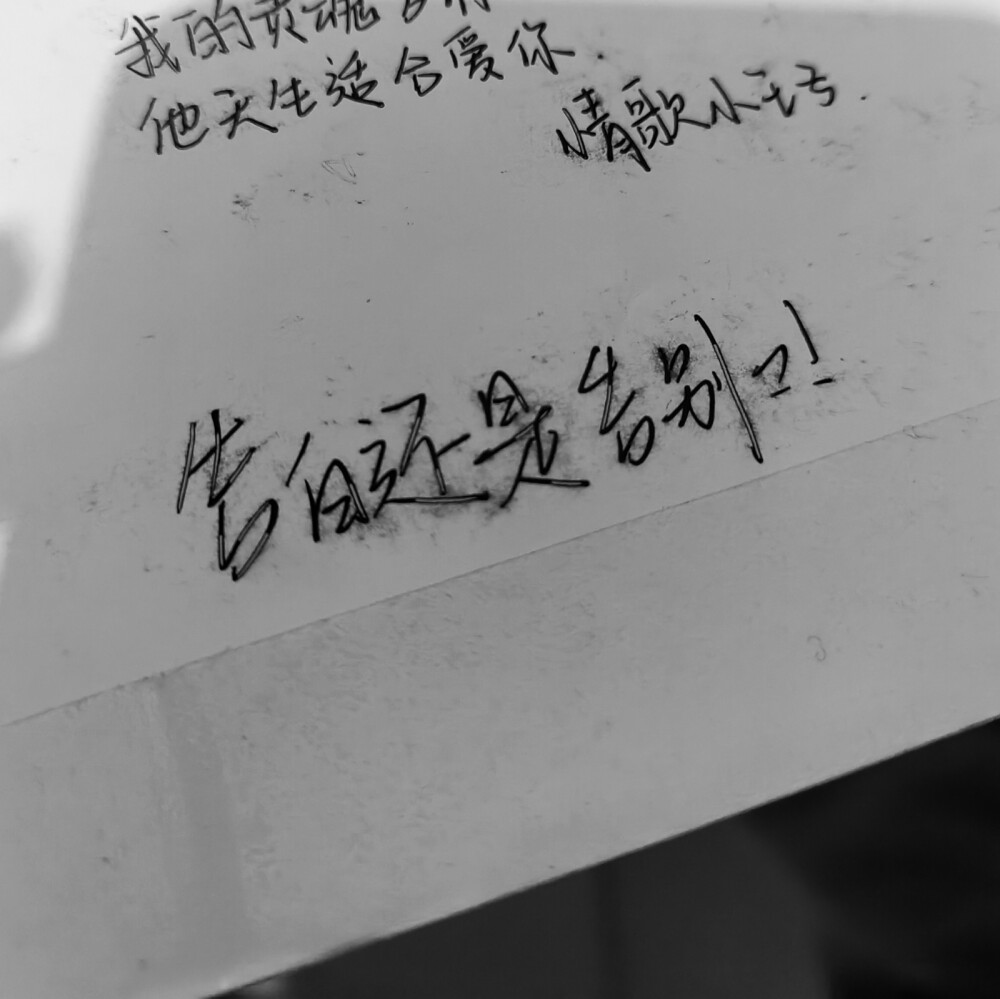 我的灵魂
他天生适合爱你.
情歌小王子.
告白还是告别!!